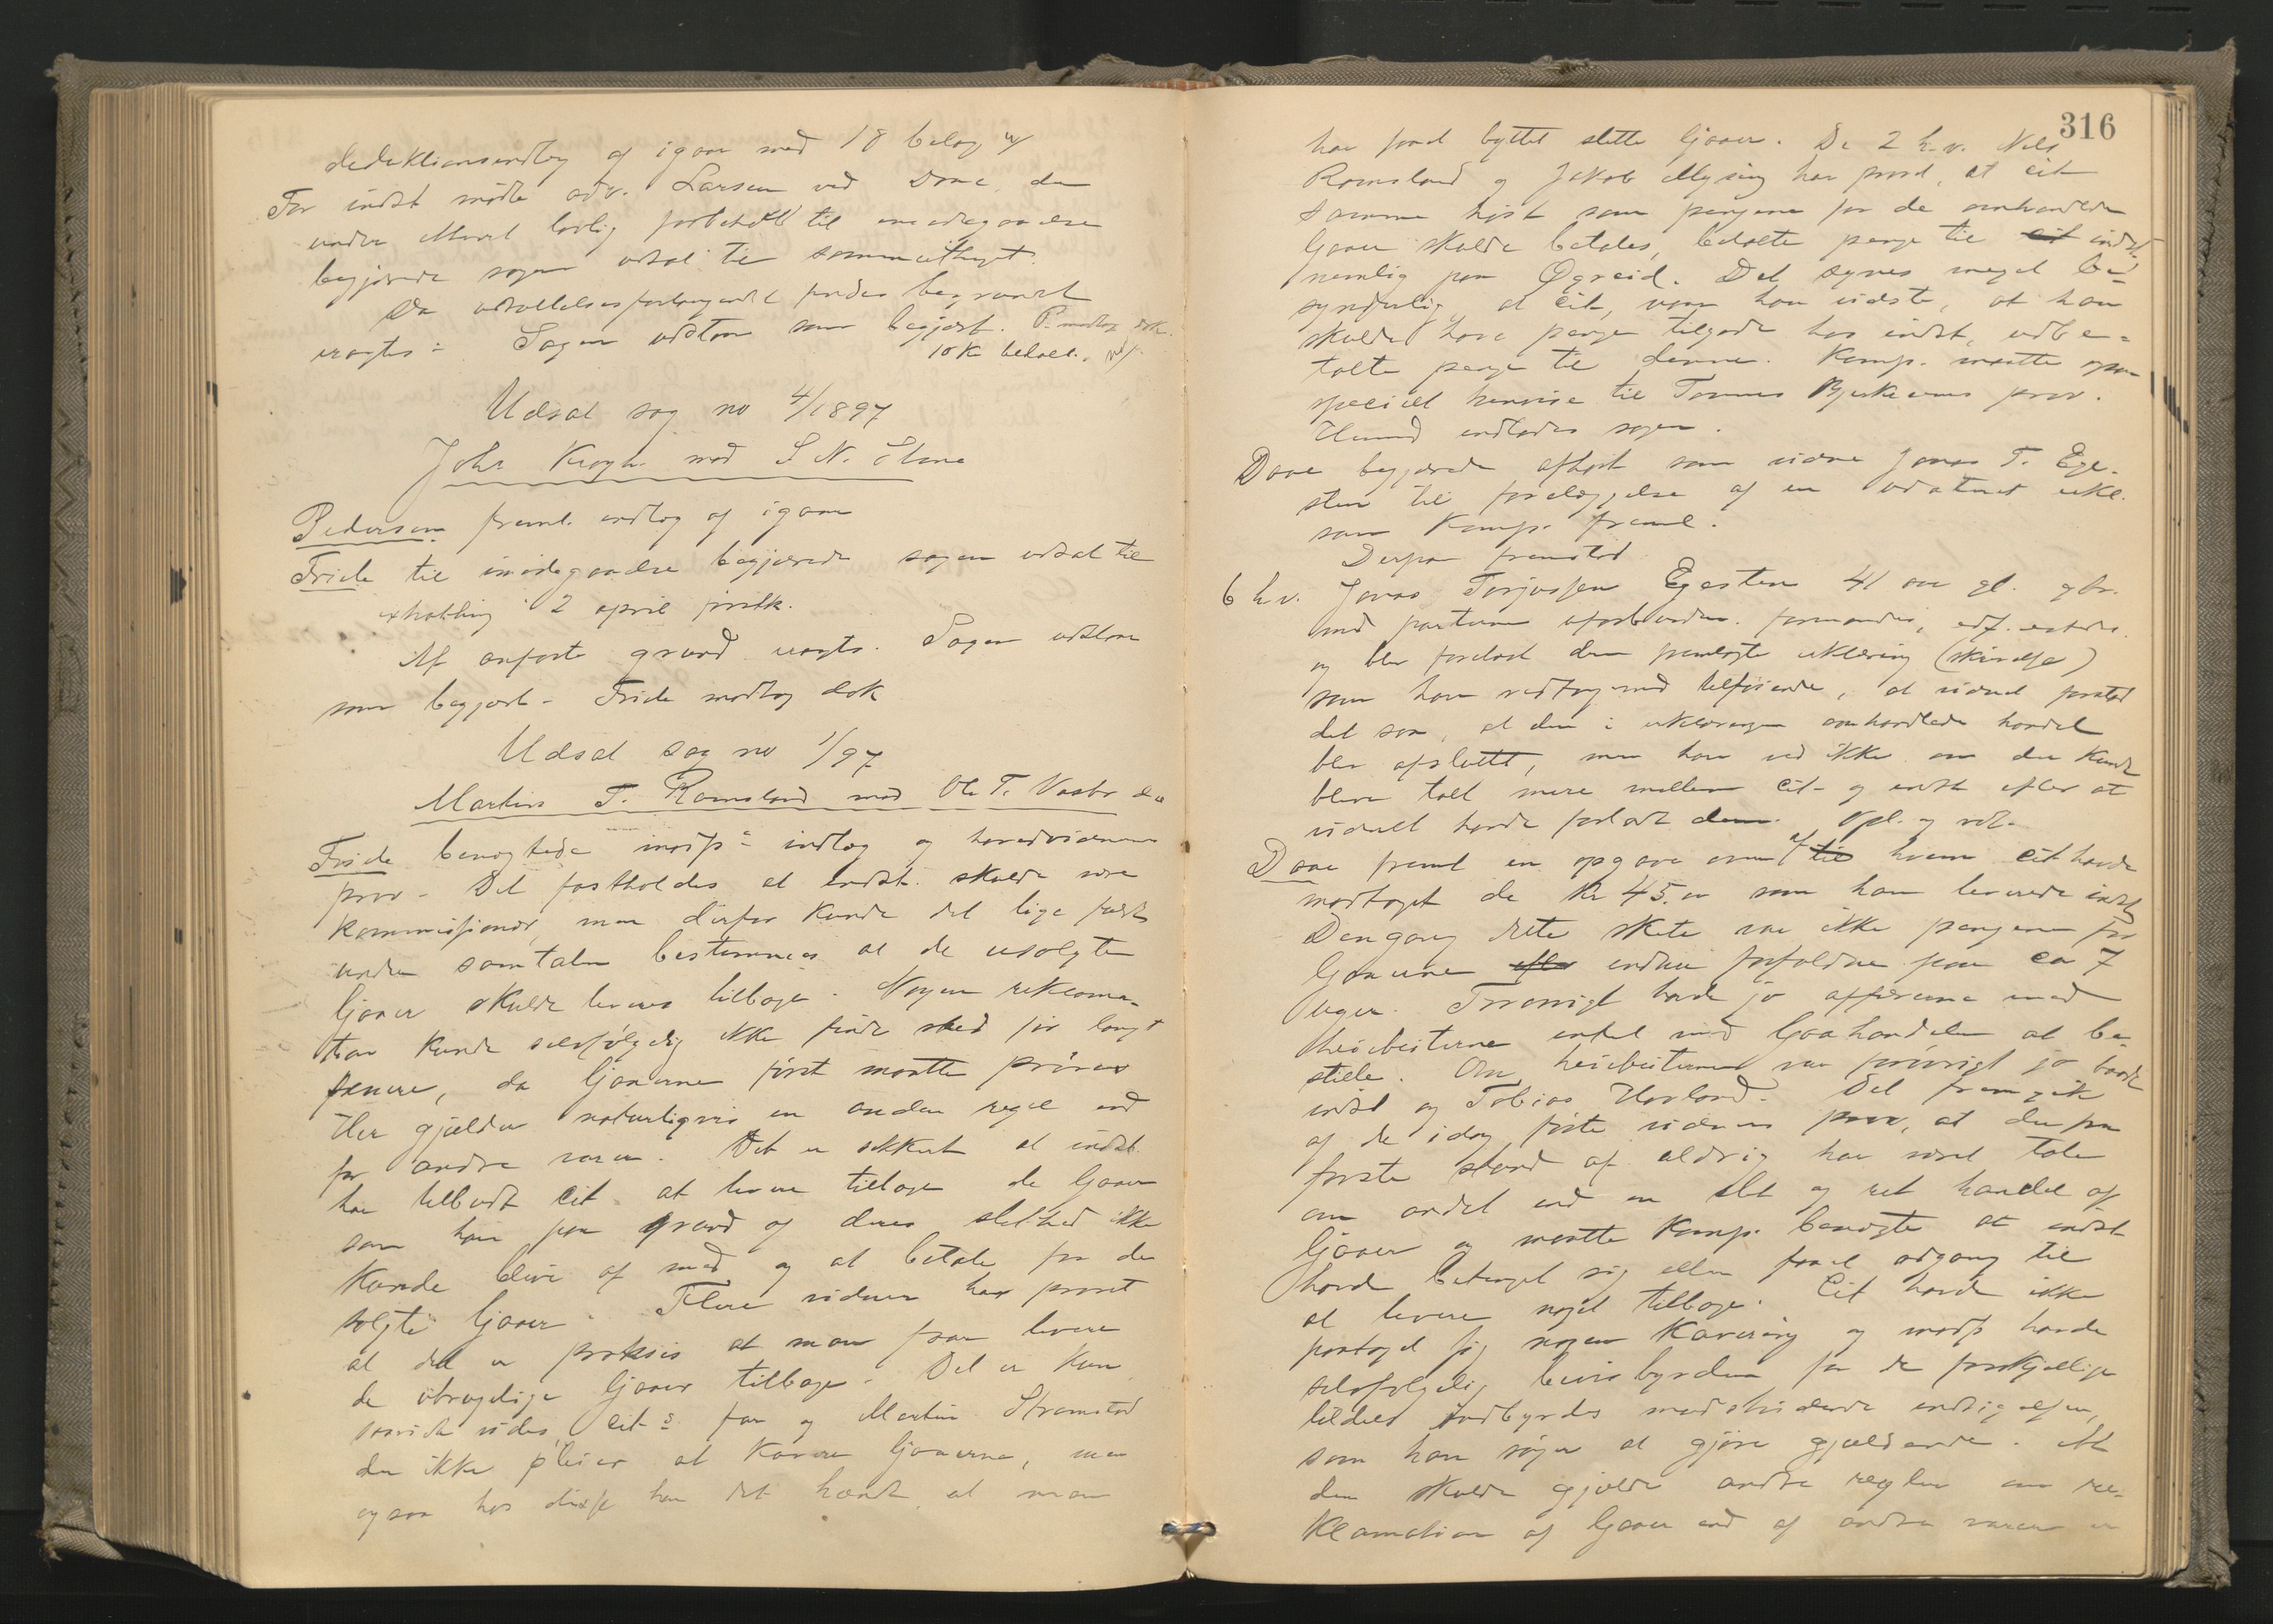 deduktionsindlæg af igaar med 18 bilag
For indst mødte adv. Larsen ved Daae, der
under lovlig forbehold til imødegaaelse
begjærede sagen udsat til sommerthinget.
Da udsættelsesforlangendet findes begrundet
eragtes: Sagen udstaar som begjært. P. modtog dok.
10 K betalt.
Udsat sag no 4/1897
John Krogh mod S N. Stene
Pedersen freml. indlæg af igaar
Friele til imødegaaelse begjærede sagen udsat til
extratthing 2 april førstk.
Af anførte grund eragtes. Sagen udstaar
som begjært - Friele modtog dok
Udsat sag no 1/97
Martin T. Ramsland mod Ole T. Vasbø
Friele benægtede modp's indlæg og hovedvidnernes
prov - Det fastholdes at indst. skulde være
kommissionær, men derfor kunde det lige fuldt
under samtalen bestemmes at de usolgte
ljaaer skulde leveres tilbage. Nogen reklama-
tion kunde selvfølgelig ikke finde sted før langt
senere, da ljaaerne først maatte prøves
Her gjælder naturligvis en anden regel end
for andre varer. Det er sikkert at indst
har tilbudt Cit. at levere tilbage de ljaaer
som han paa grund af deres slethed ikke
kunde blive af med og at betale for de
solgte ljaaer. Flere vidner har provet
at det er praksis at man faar levere
de ubrugelige ljaaer tilbage. Det er kun
saavidt vides Cit's far og Martin Stramstad
der ikke pleier at kavere ljaaerne, men
ogsaa hos disse har det hændt at man
316
har faaet byttet slette ljaaer. De 2 h.v. Nels
Ramsland og Jakob Mysing har prov. at Cit
samme høst som pengene for de omhandlede
ljaaer skulde betales, betalte penge til cit indst
nemlig paa Øgreid. Det synes meget be-
synderlig at Cit, naar han vidste, at han
skulde have penge tilgode hos indst, udbe-
talte penge til denne. Komp. maatte ogsaa
specielt henvise til Tonnes Bjerkeims prov.
Hermed indlodes sagen.
Daae begjærede afhørt som vidne Jonas T. Ege-
sten til forelæggelse af en udateret erkl.
som komp. freml.
Derpaa fremstod
6 h.v. Jonas Torjussen Egesten 41 aar gl. gbr.
med parterne uforbunden. formanedes, edf. estedes.
og blev forelæst den fremlagte erklæring (skindelse)
som han vedtog med tilføiende, at vidnet forstod
det saa, at den i erklæringen omhandlede handel
blev afsluttet, men han ved ikke om der kunde
bleve talt mere mellem Cit. og indst efter at
vidnet havde forladt dem. Opl. og vedt.
Daae freml en opgave over af til hvem Cit havde
modtaget de Kr 45.00 som han leverede indst
Dengang dette skete var ikke pengene for
ljaaerne efter endnu forfaldne paa ca 7
uger. Forøvrigt havde jo affærerne med
heibeisterne intet med ljaahandelen at be-
stille. Om heibeisterne var forøvrigt jo baade
indst og Tobias Havland. Det fremgik
af de idag førte vidners prov, at der fra
første stund af aldrig har været tale
om andet end en slet og ret handel af
ljaaer og maatte komp. benægte at indst
havde betinget sig eller faaet adgang til
at levere noget tilbage. Cit havde ikke
paataget sig nogen kavering og modp havde
selvfølgelig bevisbyrden for de forskjellige
tildels indbyrdes modstridende indsigelser,
som han søger at gjøre gjældende. At
der skulde gjælde andre regler om re-
klamation af ljaaer end af andre varer er